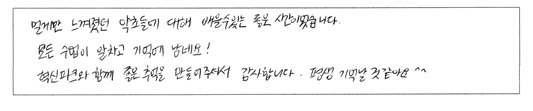 멀게만 느껴졌던 약초들에 대해 배울수있는 좋은 시간이었습니다.
모든 수업이 알차고 기억에 남네요!
혁신파크와 함께 좋은 추억을 만들어주셔서 감사합니다. 평생 기억날 것같아요 ^^